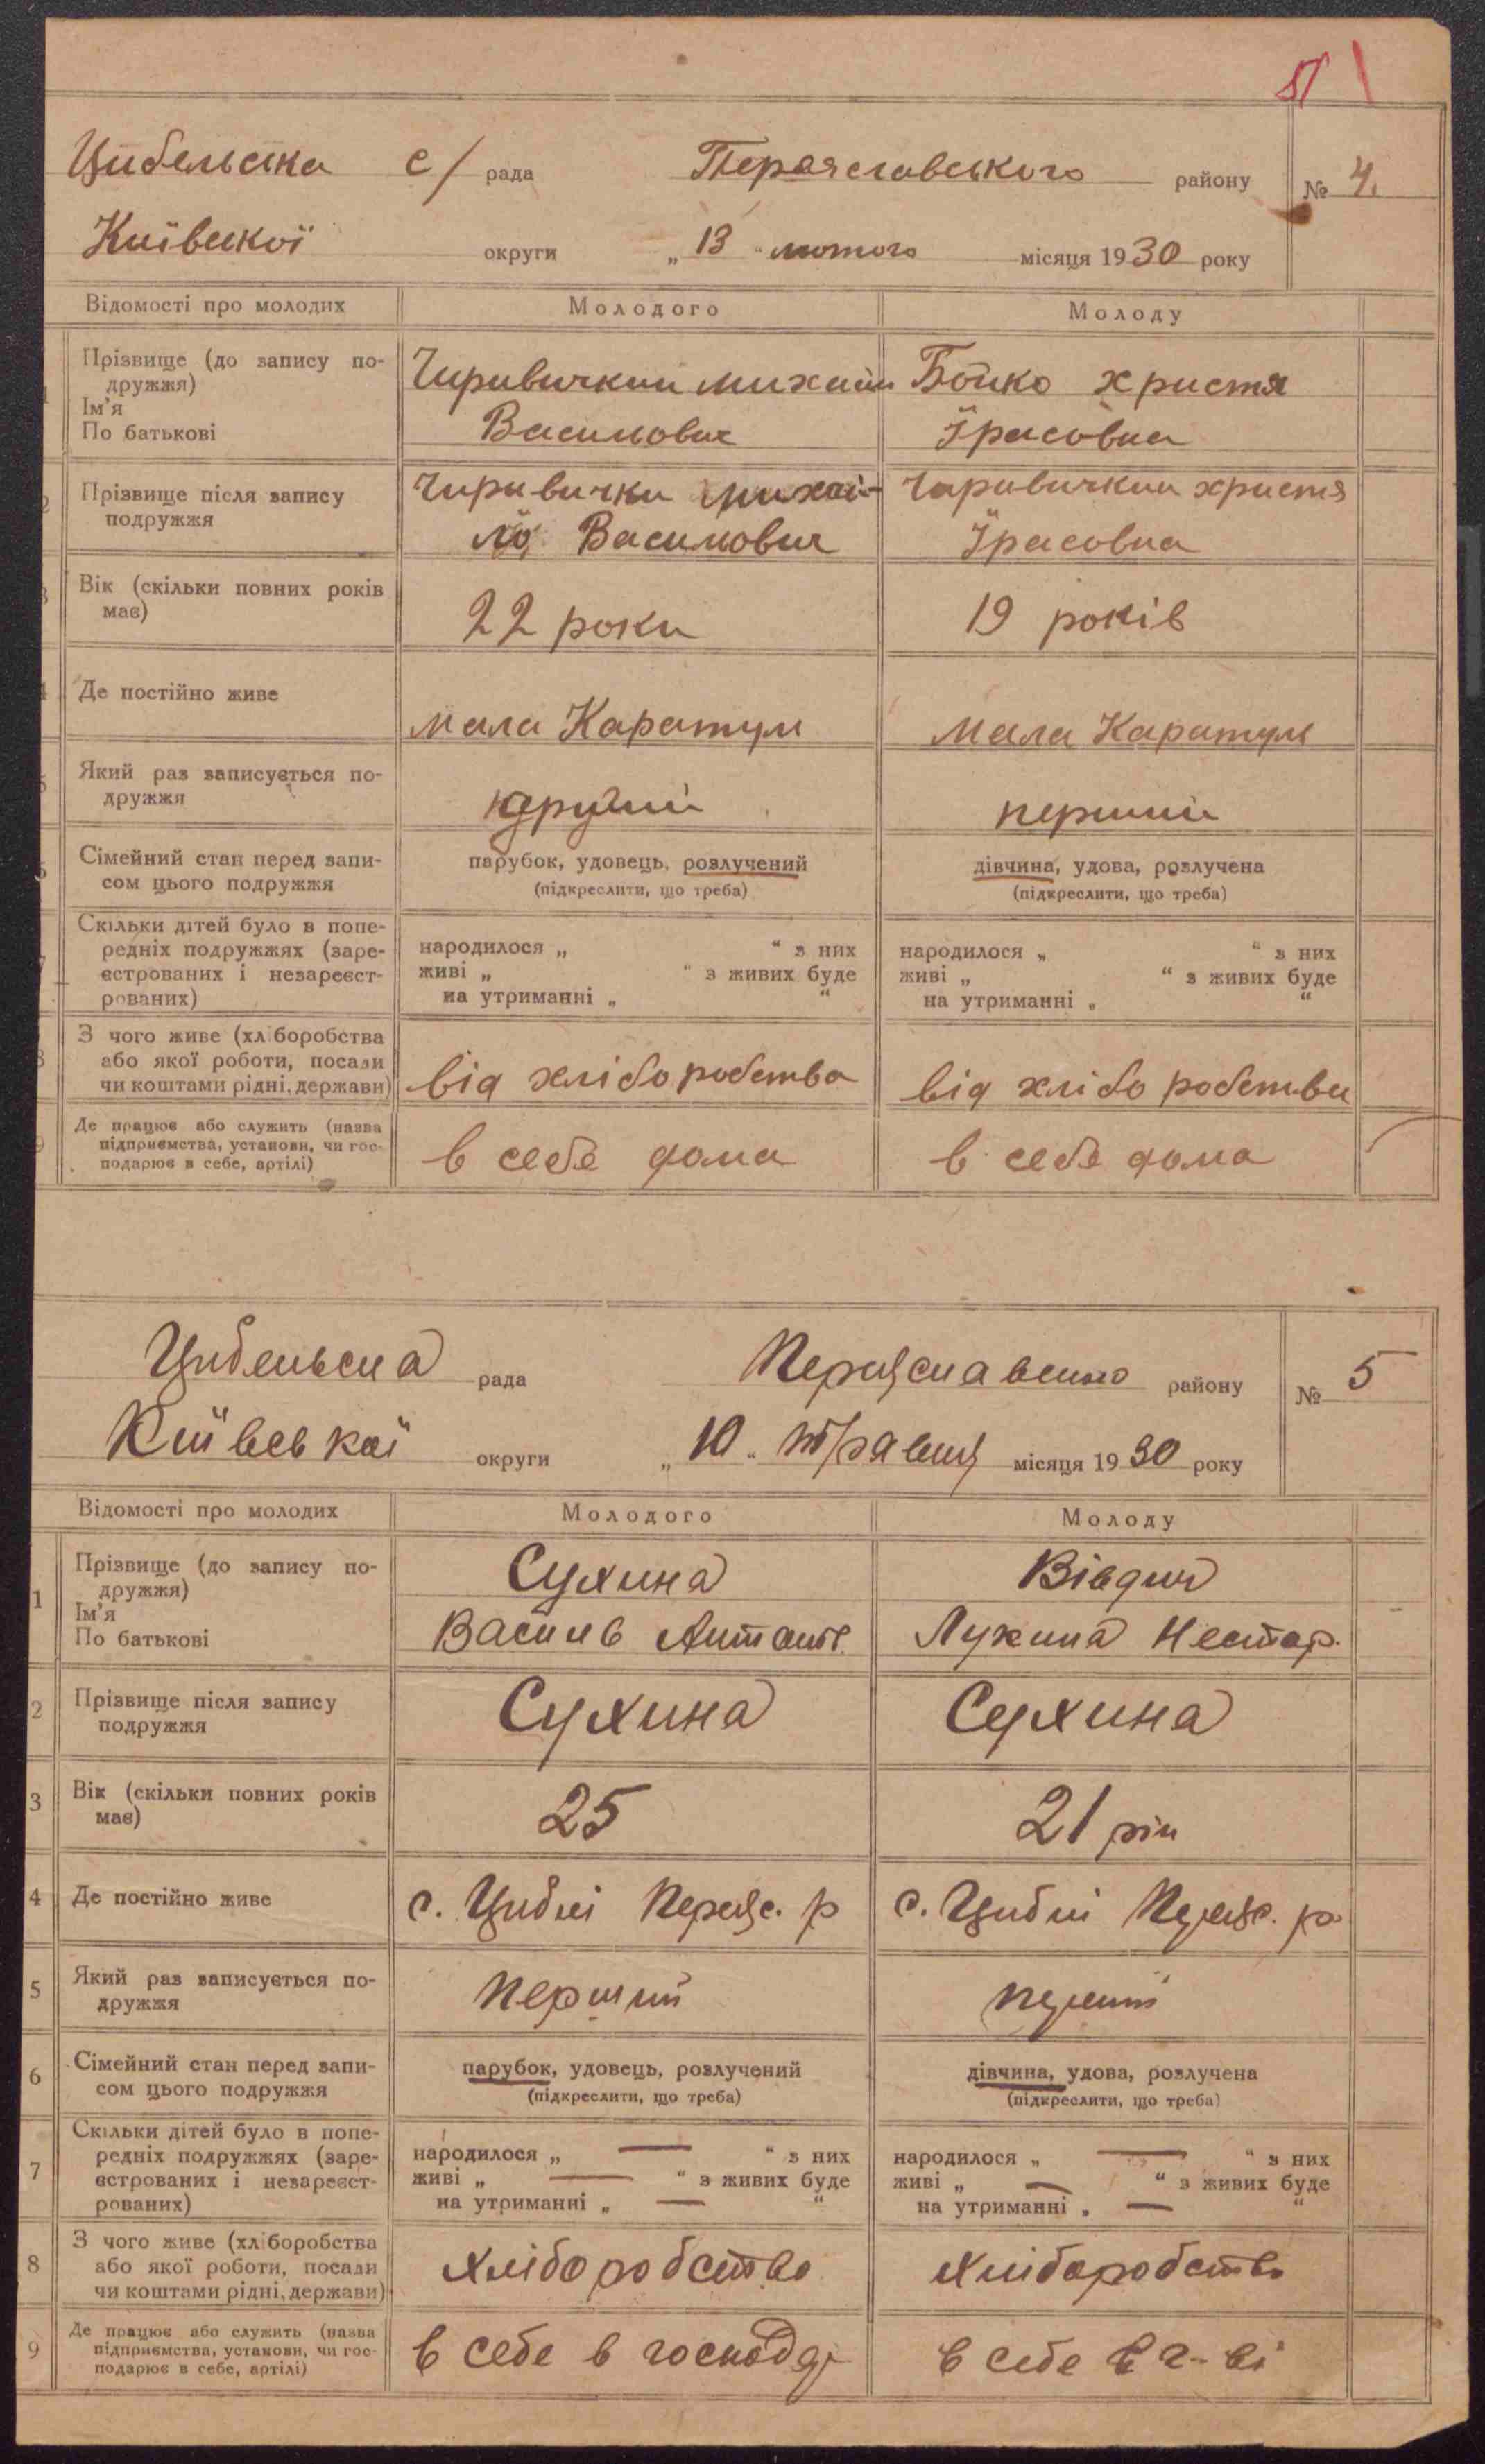 Цибельська с/рада Переяславського району № 4.
Київської округи „13“ лютого місяця 1930 року
Відомості про молодих Молодого Молоду
Прізвище (до запису по-
дружжя)
Ім’я
По батькові
Чиривички Михайло
Василович
Бойко христя
Прізвище після запису
подружжя
Чиривички Михай-
ло Василович
Чиривички христя
Вік (скільки повних років
має)
22 роки
19 років
Де постійно живе
Мала Каратуль
Мала Каратуль
Який раз записується по-
дружжя
другий
перший
Сімейний стан перед запи-
сом цього подружжя
парубок, удовець, розлучений
(підкреслити, що треба)
дівчина, удова, розлучена
(підкреслити, що треба)
Скільки дітей було в попе-
редніх подружжях (заре-
єстрованих і незареєст-
рованих)
народилося „ “ з них
живі „ “ з живих буде
на утриманні „ “
народилося „ “ з них
живі „ “ з живих буде
на утриманні „ “
З чого живе (хліборобства
або якої роботи, посади
чи коштами рідні, держави)
від хліборобства
від хліборобства
Де працює або служить (назва
підприємства, установи, чи гос-
подарює в себе, артілі)
в себе дома
в себе дома
Цибельська рада району № 5
Київської округи „10“ травня місяця 1930 року
Відомості про молодих Молодого Молоду
1
Прізвище (до запису по-
дружжя)
Ім’я
По батькові
Сухина
Василь Антон.
Вівдич
Лукина Нестор.
2
Прізвище після запису
подружжя
Сухина
Сухина
3
Вік (скільки повних років
має)
25
21 рік
4
Де постійно живе
с. Циблі Переяс. р
с. Циблі Переяс. р.
5
Який раз записується по-
дружжя
перший
перший
6
Сімейний стан перед запи-
сом цього подружжя
парубок, удовець, розлучений
(підкреслити, що треба)
дівчина, удова, розлучена
(підкреслити, що треба)
7
Скільки дітей було в попе-
редніх подружжях (заре-
єстрованих і незареєст-
рованих)
народилося „ — “ з них
живі „ — “ з живих буде
на утриманні „ — “
народилося „ — “ з них
живі „ — “ з живих буде
на утриманні „ — “
8
З чого живе (хліборобства
або якої роботи, посади
чи коштами рідні, держави)
хліборобство
хліборобство
9
Де працює або служить (назва
підприємства, установи, чи гос-
подарює в себе, артілі)
в себе в господ.
в себе в г-ві